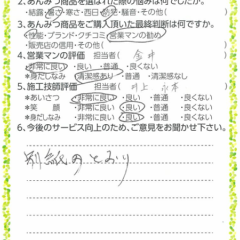 2.あんみつ商品を選ばれた際の悩みは何でしたか。
・結露・暑さ・寒さ・西日・
・その他(
3.あんみつ商品をご購入頂いた最終判断は何ですか。
・性能・ブランド・クチコミ・営業マンの勧め
・販売店の信用・その他(
4.営業マンの評価 担当者(
*非常に良い ・良い ・普通 ・良くない
*身だしなみ 清潔感あり・普通・清潔感なし
5.施工技師評価 担当者(井上
*あいさつ ・非常に良い ・良い ・普通 ・良くない
*笑 顔 ・非常に良い ・良い ・普通 ・良くない
*身だしなみ ・非常に良い ・良い ・普通 ・良くない
6.今後のサービス向上のため、ご意見をお聞かせ下さい。
別紙のとおり